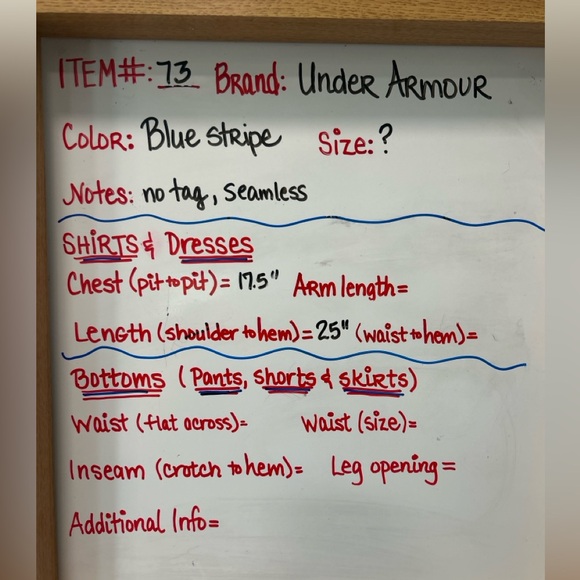 ITEM#: 73 Brand: Under ARMOUR
Color: Blue stripe Size: ?
Notes: no tag, Seamless
SHiRTS & Dresses
Chest (pit to pit) = 17.5" Arm length =
Length (shoulder to hem) = 25" (waist to hem) =
Bottoms (Pants, shorts & skirts)
Waist (flat across) = Waist (size) =
Inseam (crotch to hem) = Leg opening =
Additional Info =